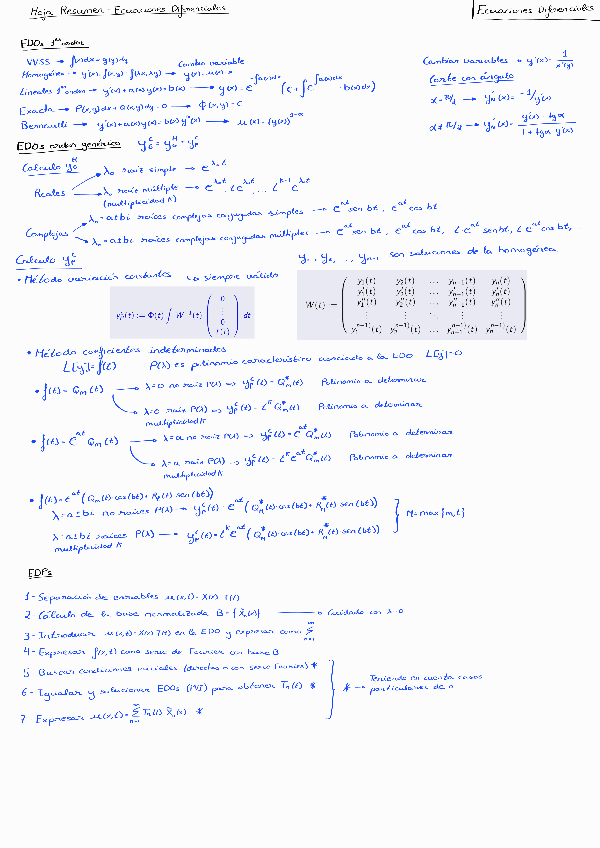 Hoja Resumen - Ecuaciones Diferenciales
Ecuaciones Diferenciales
EDOs 1er orden
VVSS → f(x)dx = g(y)dy
Cambio variable
Homogénea → y'(x) = f(x,y) = f(λx, λy) → y(x) = u(x)·x
Lineales 1er orden → y'(x) + a(x)y(x) = b(x) → y(x) = e^{-∫a(x)dx} (C + ∫e^{∫a(x)dx} · b(x)dx)
Exacta → P(x,y)dx + Q(x,y)dy = 0 → ϕ(x,y) = C
Bernouilli → y'(x) + a(x)y(x) = b(x)y^α(x) → u(x) = (y(x))^{1-α}
Cambiar variables → y'(x) = 1/x'(y)
Corte con ángulo
α = π/2 → y'_N(x) = -1/y'(x)
α ≠ π/2 → y'_N(x) = (y'(x) - tg α)/(1 + tg α y'(x))
EDOs orden genérico y_G^C = y_G^H + y_P^C
Cálculo y_G^H
Reales
λ_0 raíz simple → e^{λ_0 t}
λ_0 raíz múltiple → e^{λ_0 t}, t e^{λ_0 t}, ... t^{k-1} e^{λ_0 t}
(multiplicidad k)
Complejas
λ_n = a±bi raíces complejas conjugadas simples → e^{at} sen bt, e^{at} cos bt
λ_n = a±bi raíces complejas conjugadas múltiples → e^{at} sen bt, e^{at} cos bt, t e^{at} sen bt, t e^{at} cos bt,
Cálculo y_P^C
y_1, y_2, ..., y_{n-1} son soluciones de la homogénea
• Método variación constantes ↳ siempre válido
y_p^c(t) := Φ(t) ∫ W^{-1}(t) (0 0 ⋮ 0 f(t)) dt
W(t) = ( y_1(t) y_2(t) ... y_{n-1}(t) y_n(t)
y'_1(t) y'_2(t) ... y'_{n-1}(t) y'_n(t)
y''_1(t) y''_2(t) ... y''_{n-1}(t) y''_n(t)
⋮ ⋮ ⋱ ⋮ ⋮
y_1^{n-1)}(t) y_2^{n-1)}(t) ... y_{n-1}^{n-1)}(t) y_n^{n-1)}(t) )
• Método coeficientes indeterminados
L[y] = f(t) P(λ) es polinomio característico asociado a la LDO L[y] = 0
• f(t) = Q_m(t) → λ=0 no raíz P(λ) → y_P^C(t) = Q_m^*(t) Polinomio a determinar
λ=0 raíz P(λ) → y_P^C(t) = t^k Q_m^*(t) Polinomio a determinar
multiplicidad k
• f(t) = e^{at} Q_m(t) → λ=a no raíz P(λ) → y_P^C(t) = e^{at} Q_m^*(t) Polinomio a determinar
λ=a raíz P(λ) → y_P^C(t) = t^k e^{at} Q_m^*(t) Polinomio a determinar
multiplicidad k
• f(t) = e^{at} (Q_m(t) cos(bt) + R_l(t) sen(bt))
λ=a±bi no raíces P(λ) → y_P^C(t) = e^{at} (Q_M^*(t) cos(bt) + R_M^*(t) sen(bt))
λ=a±bi raíces P(λ) → y_P^C(t) = t^k e^{at} (Q_M^*(t) cos(bt) + R_M^*(t) sen(bt))
multiplicidad k
M = max{m, l}
EDPs
1 - Separación de variables u(x,t) = X(x) T(t)
2 - Cálculo de la base normalizada B = {X̃_n(x)} → Cuidado con λ=0
3 - Introducir u(x,t) = X(x) T(t) en la EDO y expresar como ∑_{n=1}^∞
4 - Expresar f(x,t) como serie de Fourier con base B
5 - Buscar condiciones iniciales (directas o con serie Fourier) *
6 - Igualar y solucionar EDOs (PVI) para obtener T_n(t) *
7 - Expresar u(x,t) = ∑_{n=1}^∞ T_n(t) X̃_n(x) *
* → Teniendo en cuenta casos
particulares de n